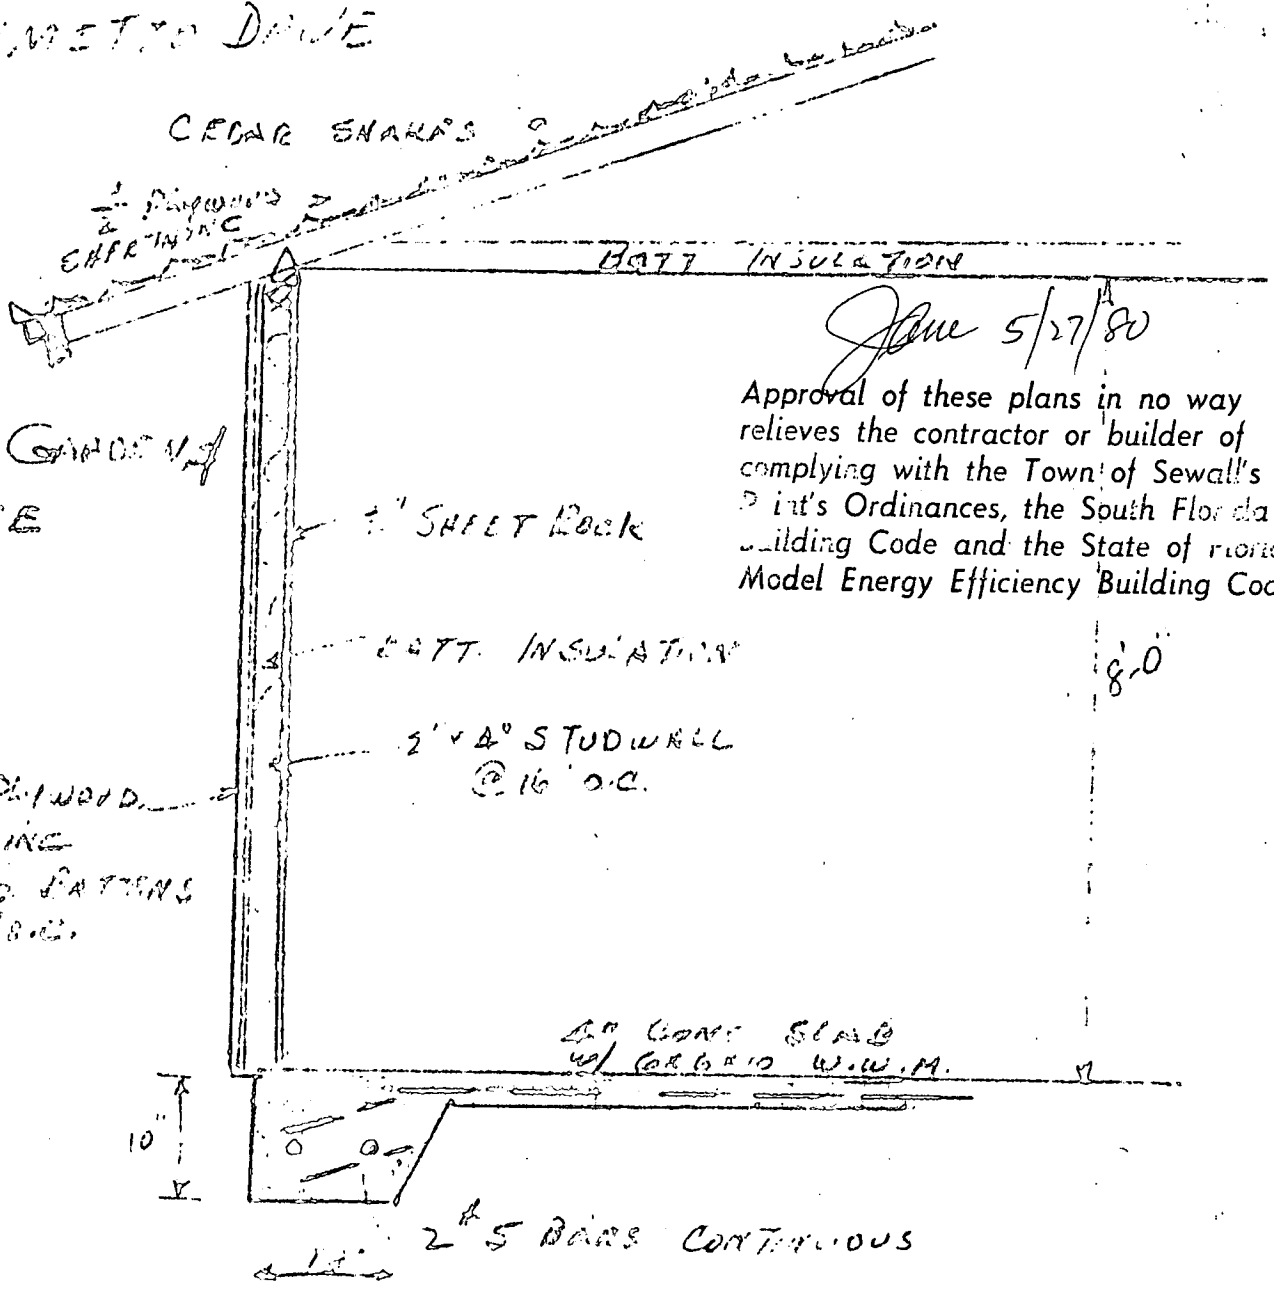 DRIVE
CEDAR SHAKES
PLYWOOD
BATT INSULATION
5/27/80
Approval of these plans in no way
relieves the contractor or builder of
complying with the Town of Sewall's
int's Ordinances, the South Florida
ilding Code and the State of
Model Energy Efficiency Building
GARDENS
SHEET ROCK
BATT. INSULATION
8'-0"
2" x 4" STUDWALL
@ 16" O.C.
BATTENS
O.C.
4" CONC SLAB
W/ 6x6 #10 W.W.M.
10"
2 #5 BARS CONTINUOUS